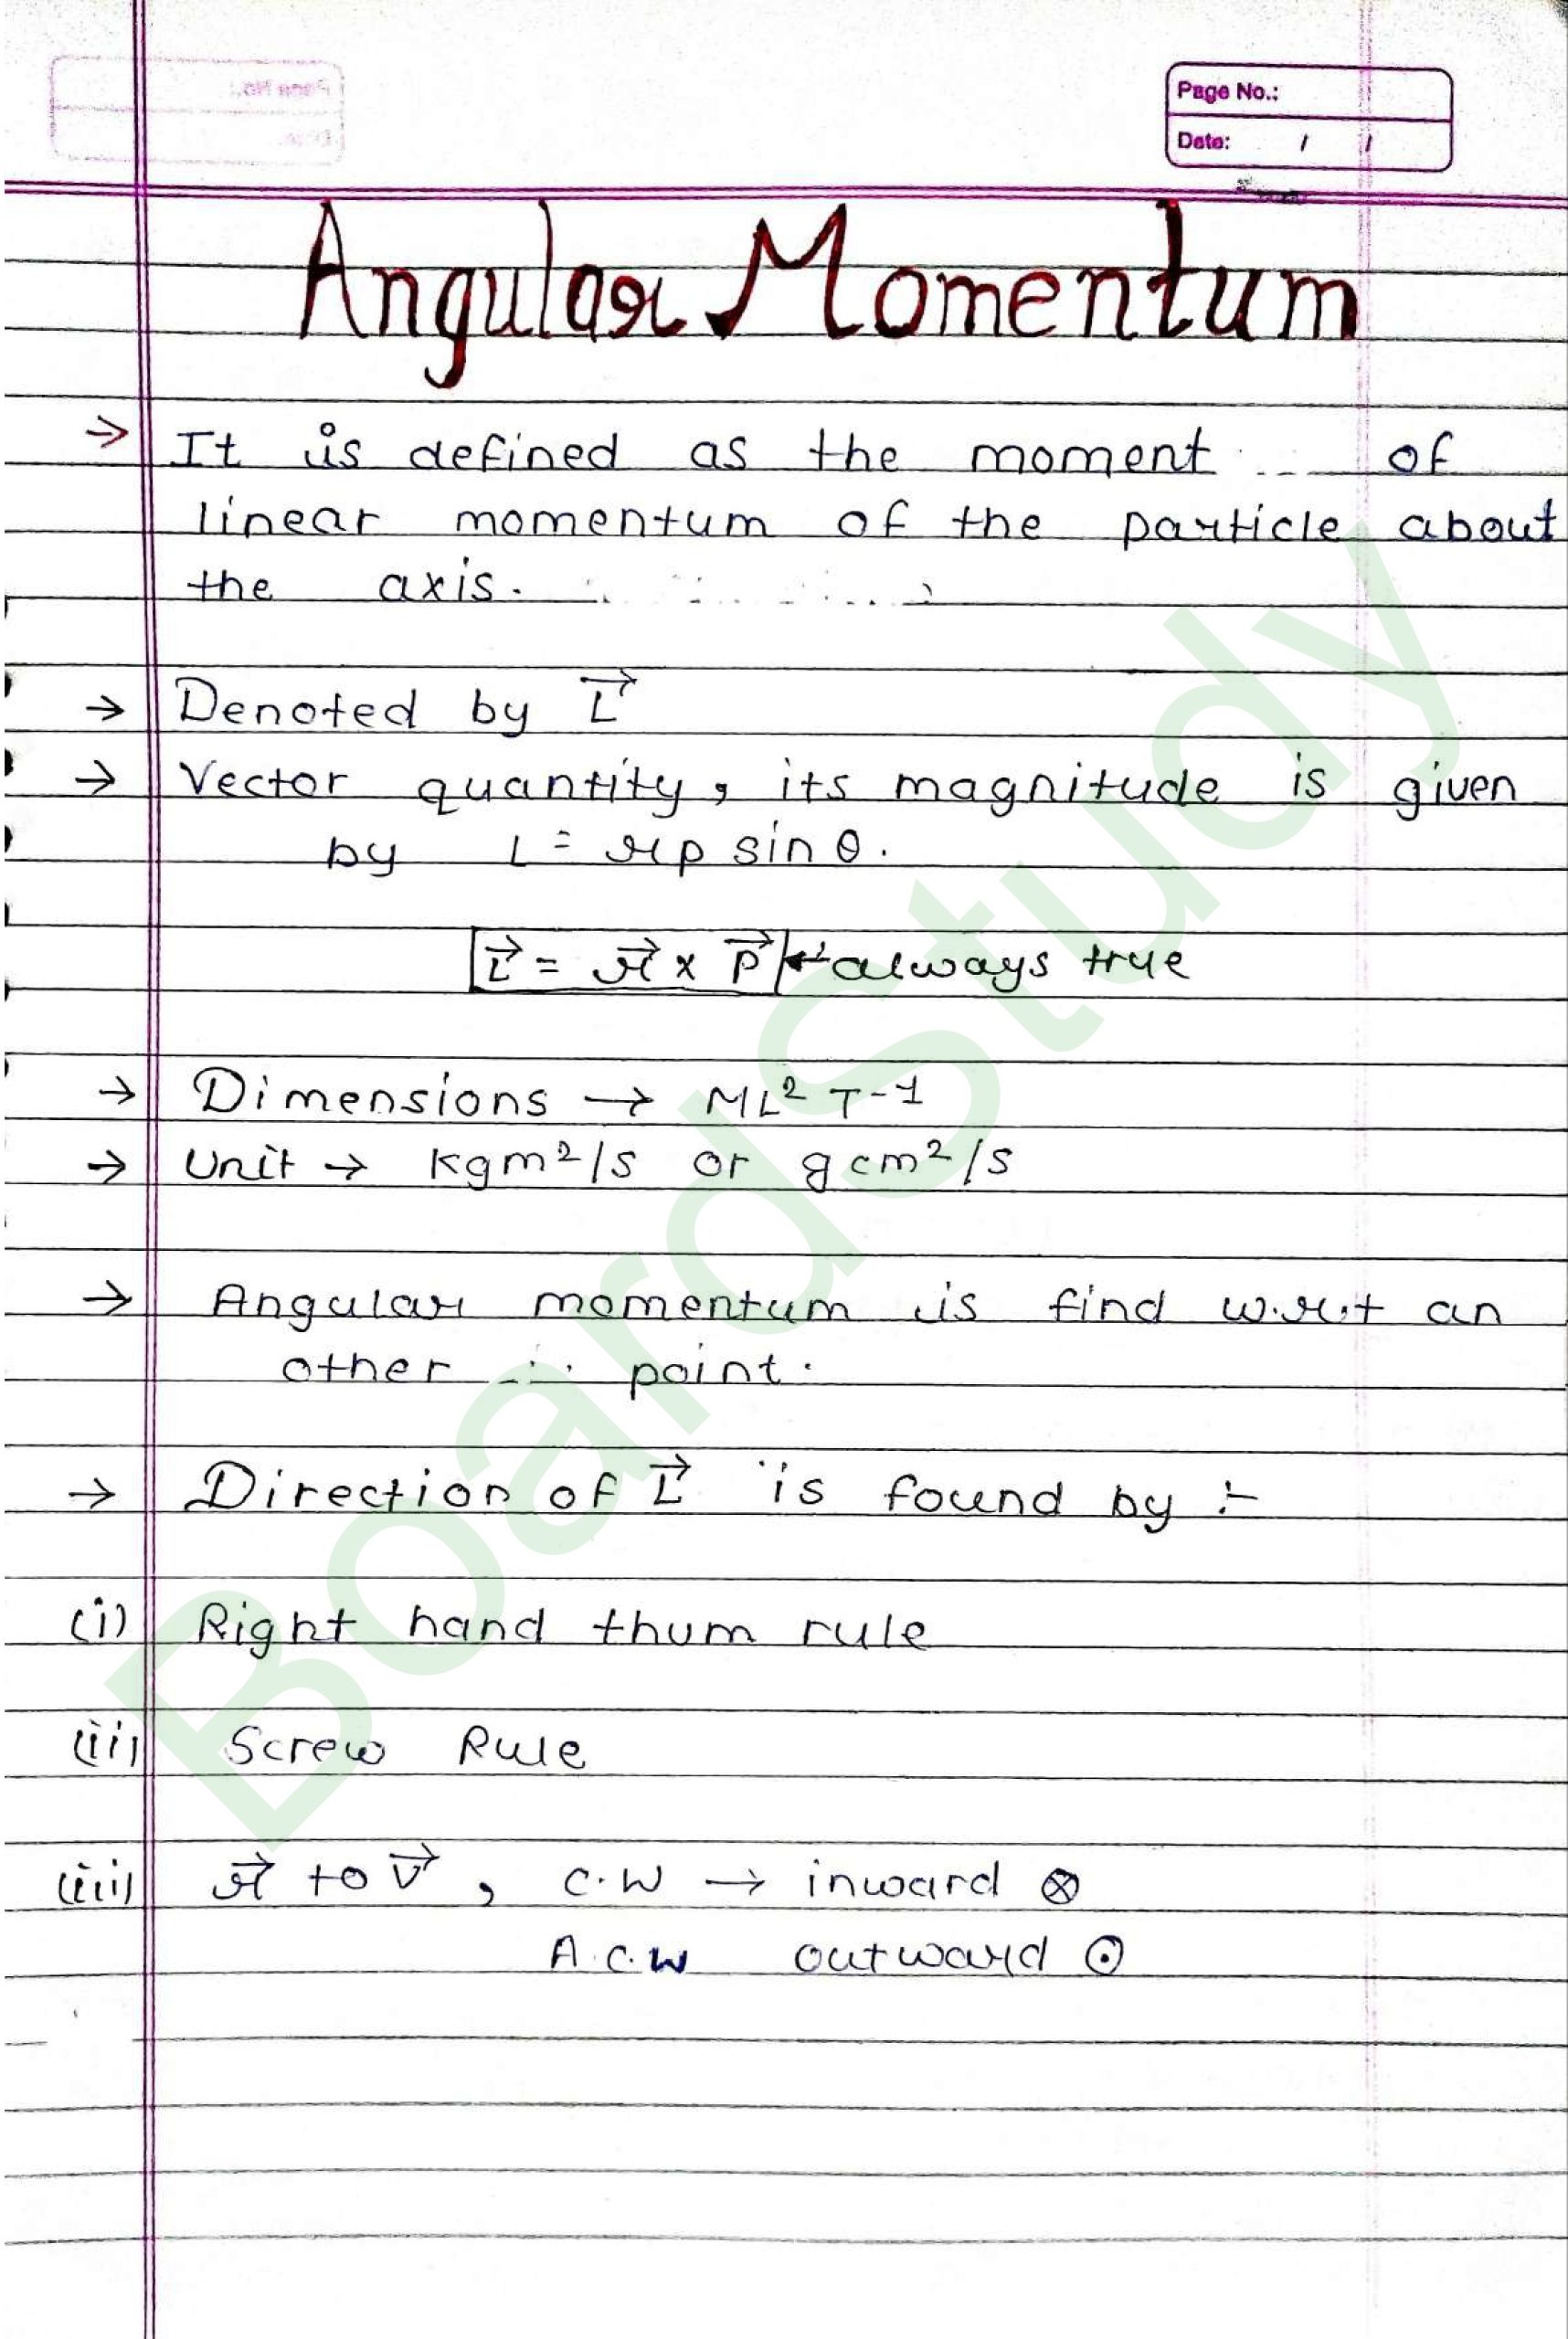 Page No.:
Date: / /
Angular Momentum
→ It is defined as the moment of
linear momentum of the particle about
the axis.
→ Denoted by L⃗
→ Vector quantity, its magnitude is given
by L = rp sin θ.
L⃗ = r⃗ × P⃗ ← always true
→ Dimensions → ML² T-1
→ Unit → kgm²/s or gcm²/s
→ Angular momentum is find w.r.t an
other point.
→ Direction of L⃗ is found by :-
(i) Right hand thum rule
(ii) Screw Rule
(iii) r⃗ to v⃗, C.W → inward ⊗
A.C.W outward ⊙
BoardStudy